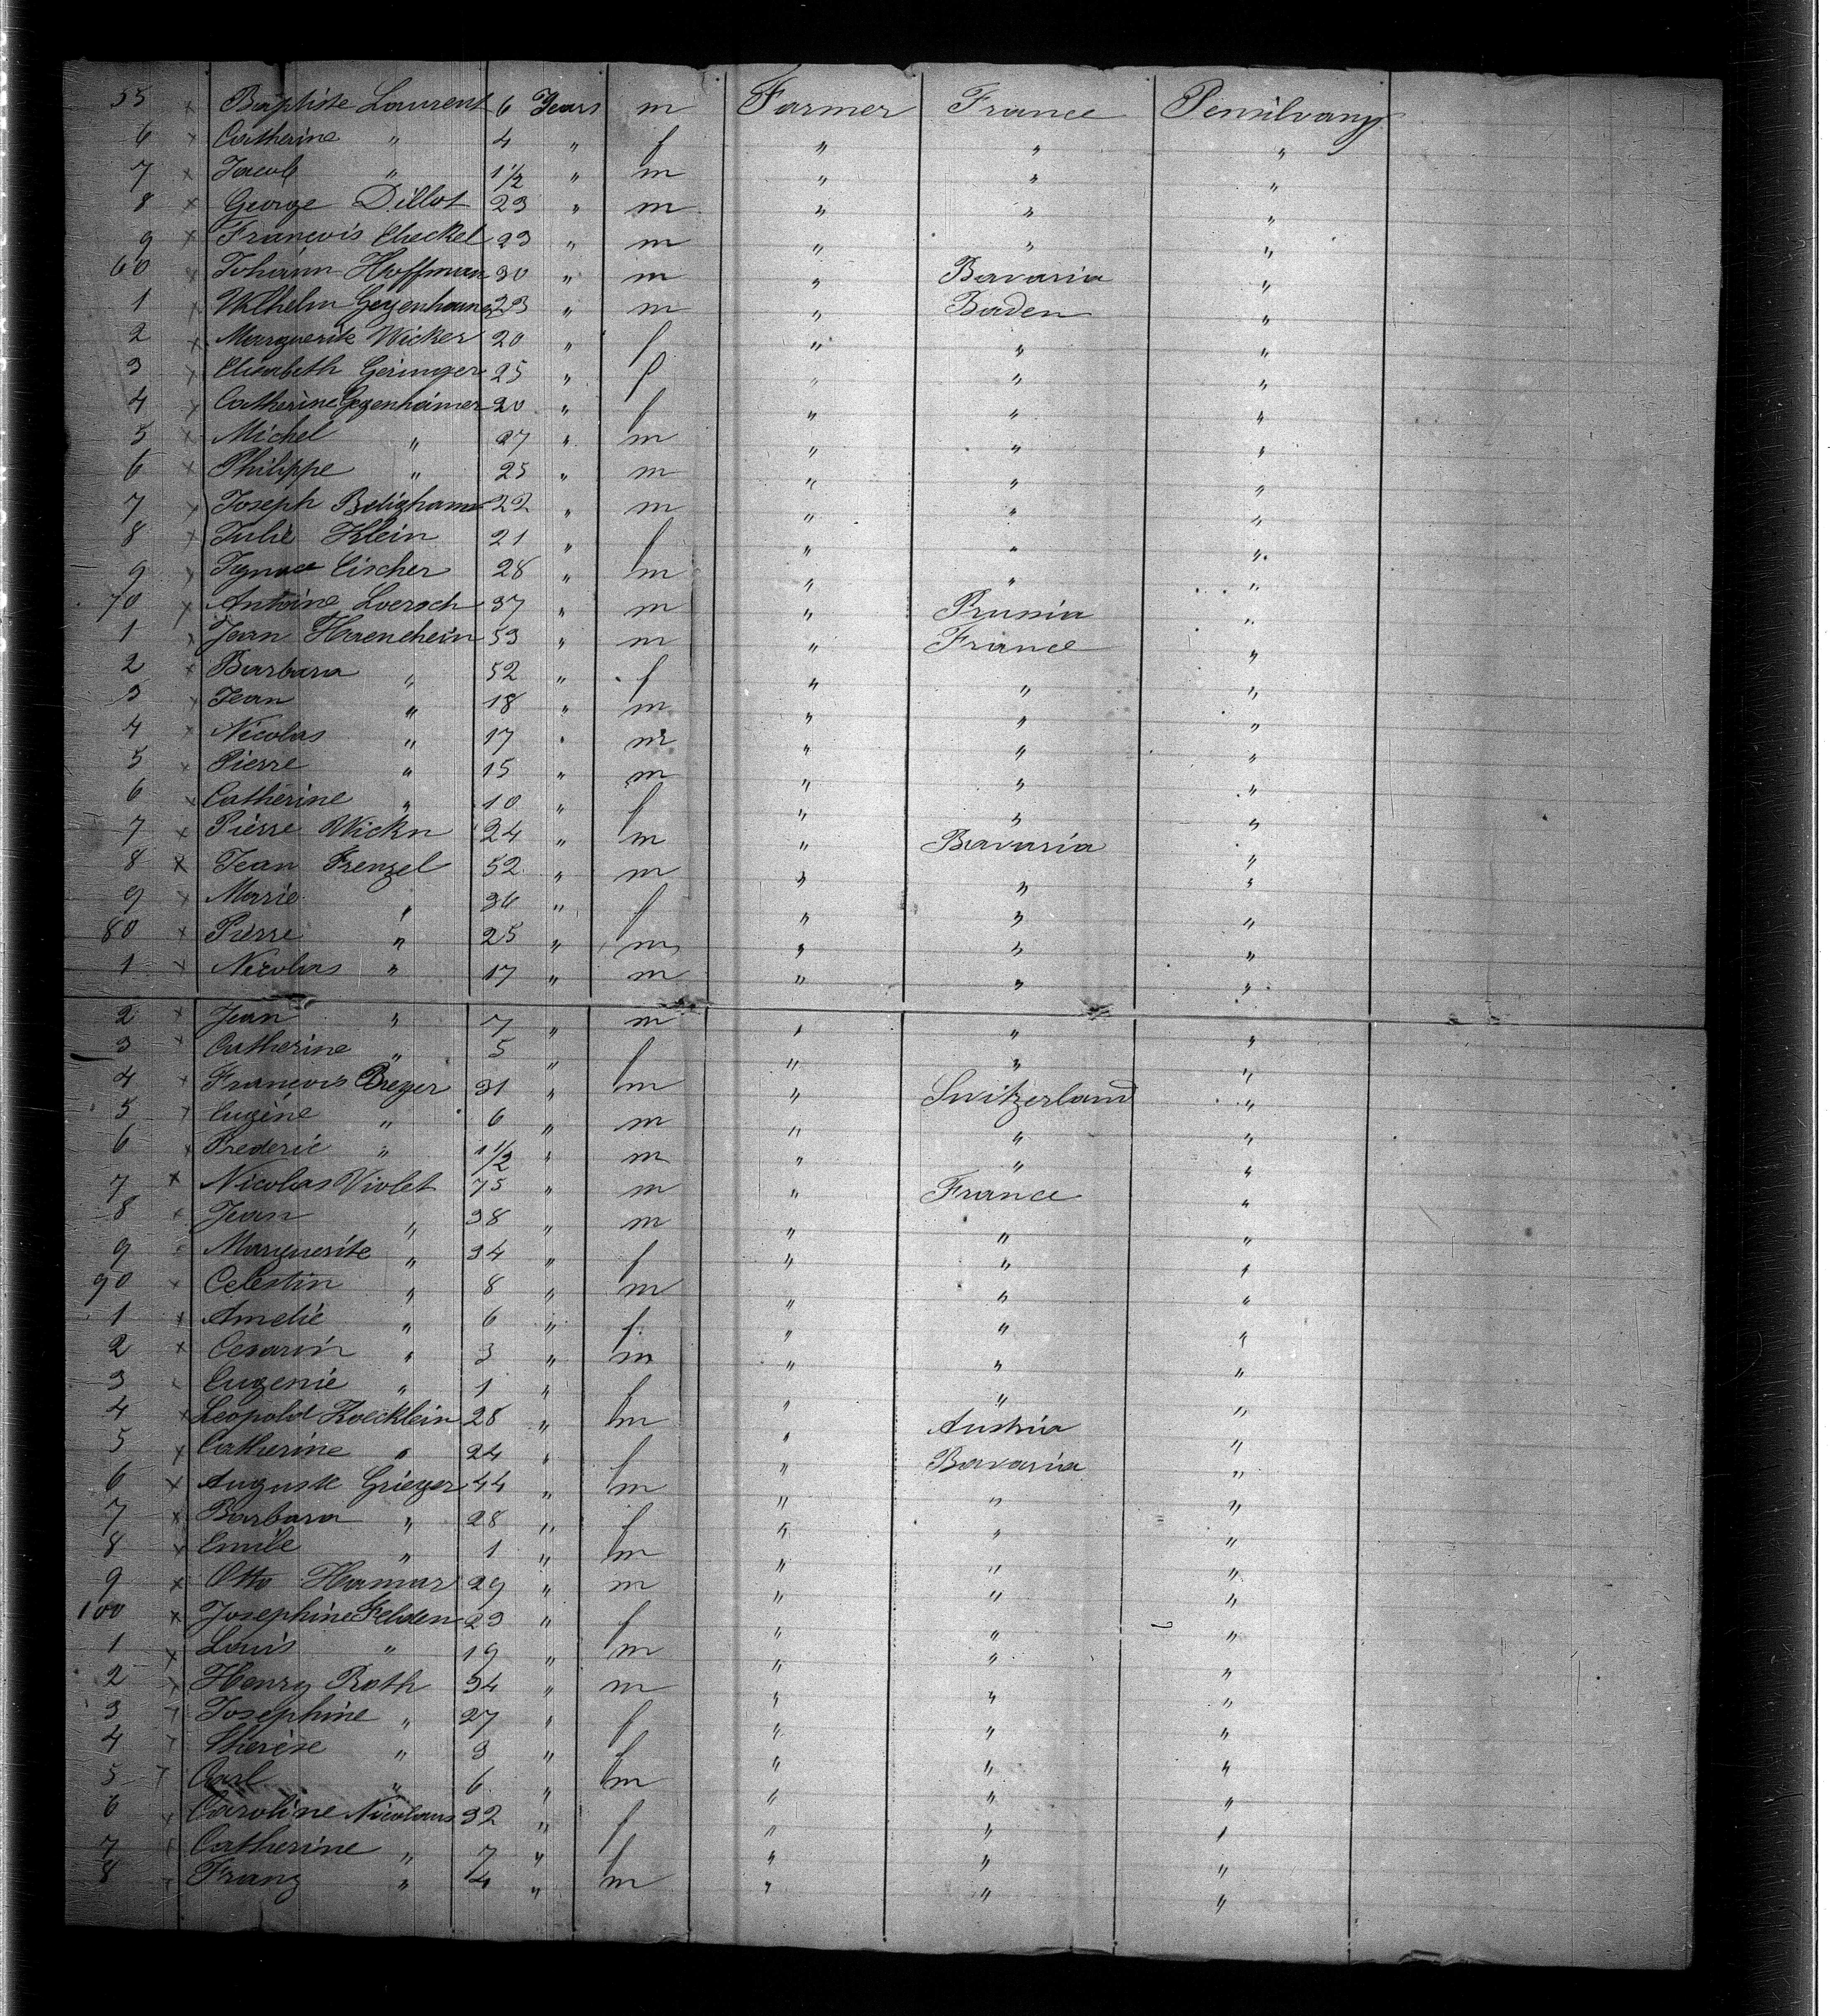 55 x Baptiste Laurent 6 Years m Farmer France Pensilvany
6 x Catherine " 4 " f " " "
7 x Jacob " 1 1/2 " m " " "
8 x George Dillot 23 " m " " "
9 x Francois Checkel 23 " m " " "
60 x Johann Hoffman 30 " m " Bavaria "
1 x Wilhelm 23 " m " Baden "
2 x Marguerite Wicker 20 " f " " "
3 x Elisabeth Geringer 25 " f " " "
4 x Catherine Gegenheimer 20 " f " " "
5 x Michel " 27 " m " " "
6 x Philippe " 25 " m " " "
7 x Joseph 22 " m " " "
8 x Julie Klein 21 " f " " "
9 x Ignace Eischer 28 " m " " "
70 x Antoine Loersch 37 " m " Prussia "
1 x Jean Haenchein 53 " m " France "
2 x Barbara " 52 " f " " "
3 x Jean " 18 " m " " "
4 x Nicolas " 17 " m " " "
5 x Pierre " 15 " m " " "
6 x Catherine " 10 " f " " "
7 x Pierre Wickn 24 " m " Bavaria "
8 x Jean Frenzel 52 " m " " "
9 x Marie " 36 " f " " "
80 x Pierre " 25 " m " " "
1 x Nicolas " 17 " m " " "
2 x Jean " 7 " m " " "
3 x Catherine " 5 " f " " "
4 x Francois Breyer 31 " m " Switzerland "
5 x Eugéne " 6 " m " " "
6 x Frederic " 1 1/2 " m " " "
7 x Nicolas Violet 75 " m " France "
8 x Jean " 38 " m " " "
9 x Marguerite " 34 " f " " "
90 x Celestin " 8 " m " " "
1 x Amelie " 6 " f " " "
2 x Cesarin " 3 " m " " "
3 x Eugenie " 1 " f " " "
4 x Leopold Koecklein 28 " m " Austria "
5 x Catherine " 24 " f " Bavaria "
6 x Auguste Grieger 44 " m " " "
7 x Barbara " 28 " f " " "
8 x Emile " 1 " m " " "
9 x Otto Hamar 29 " m " " "
100 x Josephine Felden 23 " f " " "
1 x Louis " 19 " m " " "
2 x Henry Roth 34 " m " " "
3 x Josephine " 27 " f " " "
4 x Therese " 9 " f " " "
5 x Carl " 6 " m " " "
6 x Caroline Nicolaus 32 " f " " "
7 x Catherine " 7 " f " " "
8 x Franz " 4 " m " " "